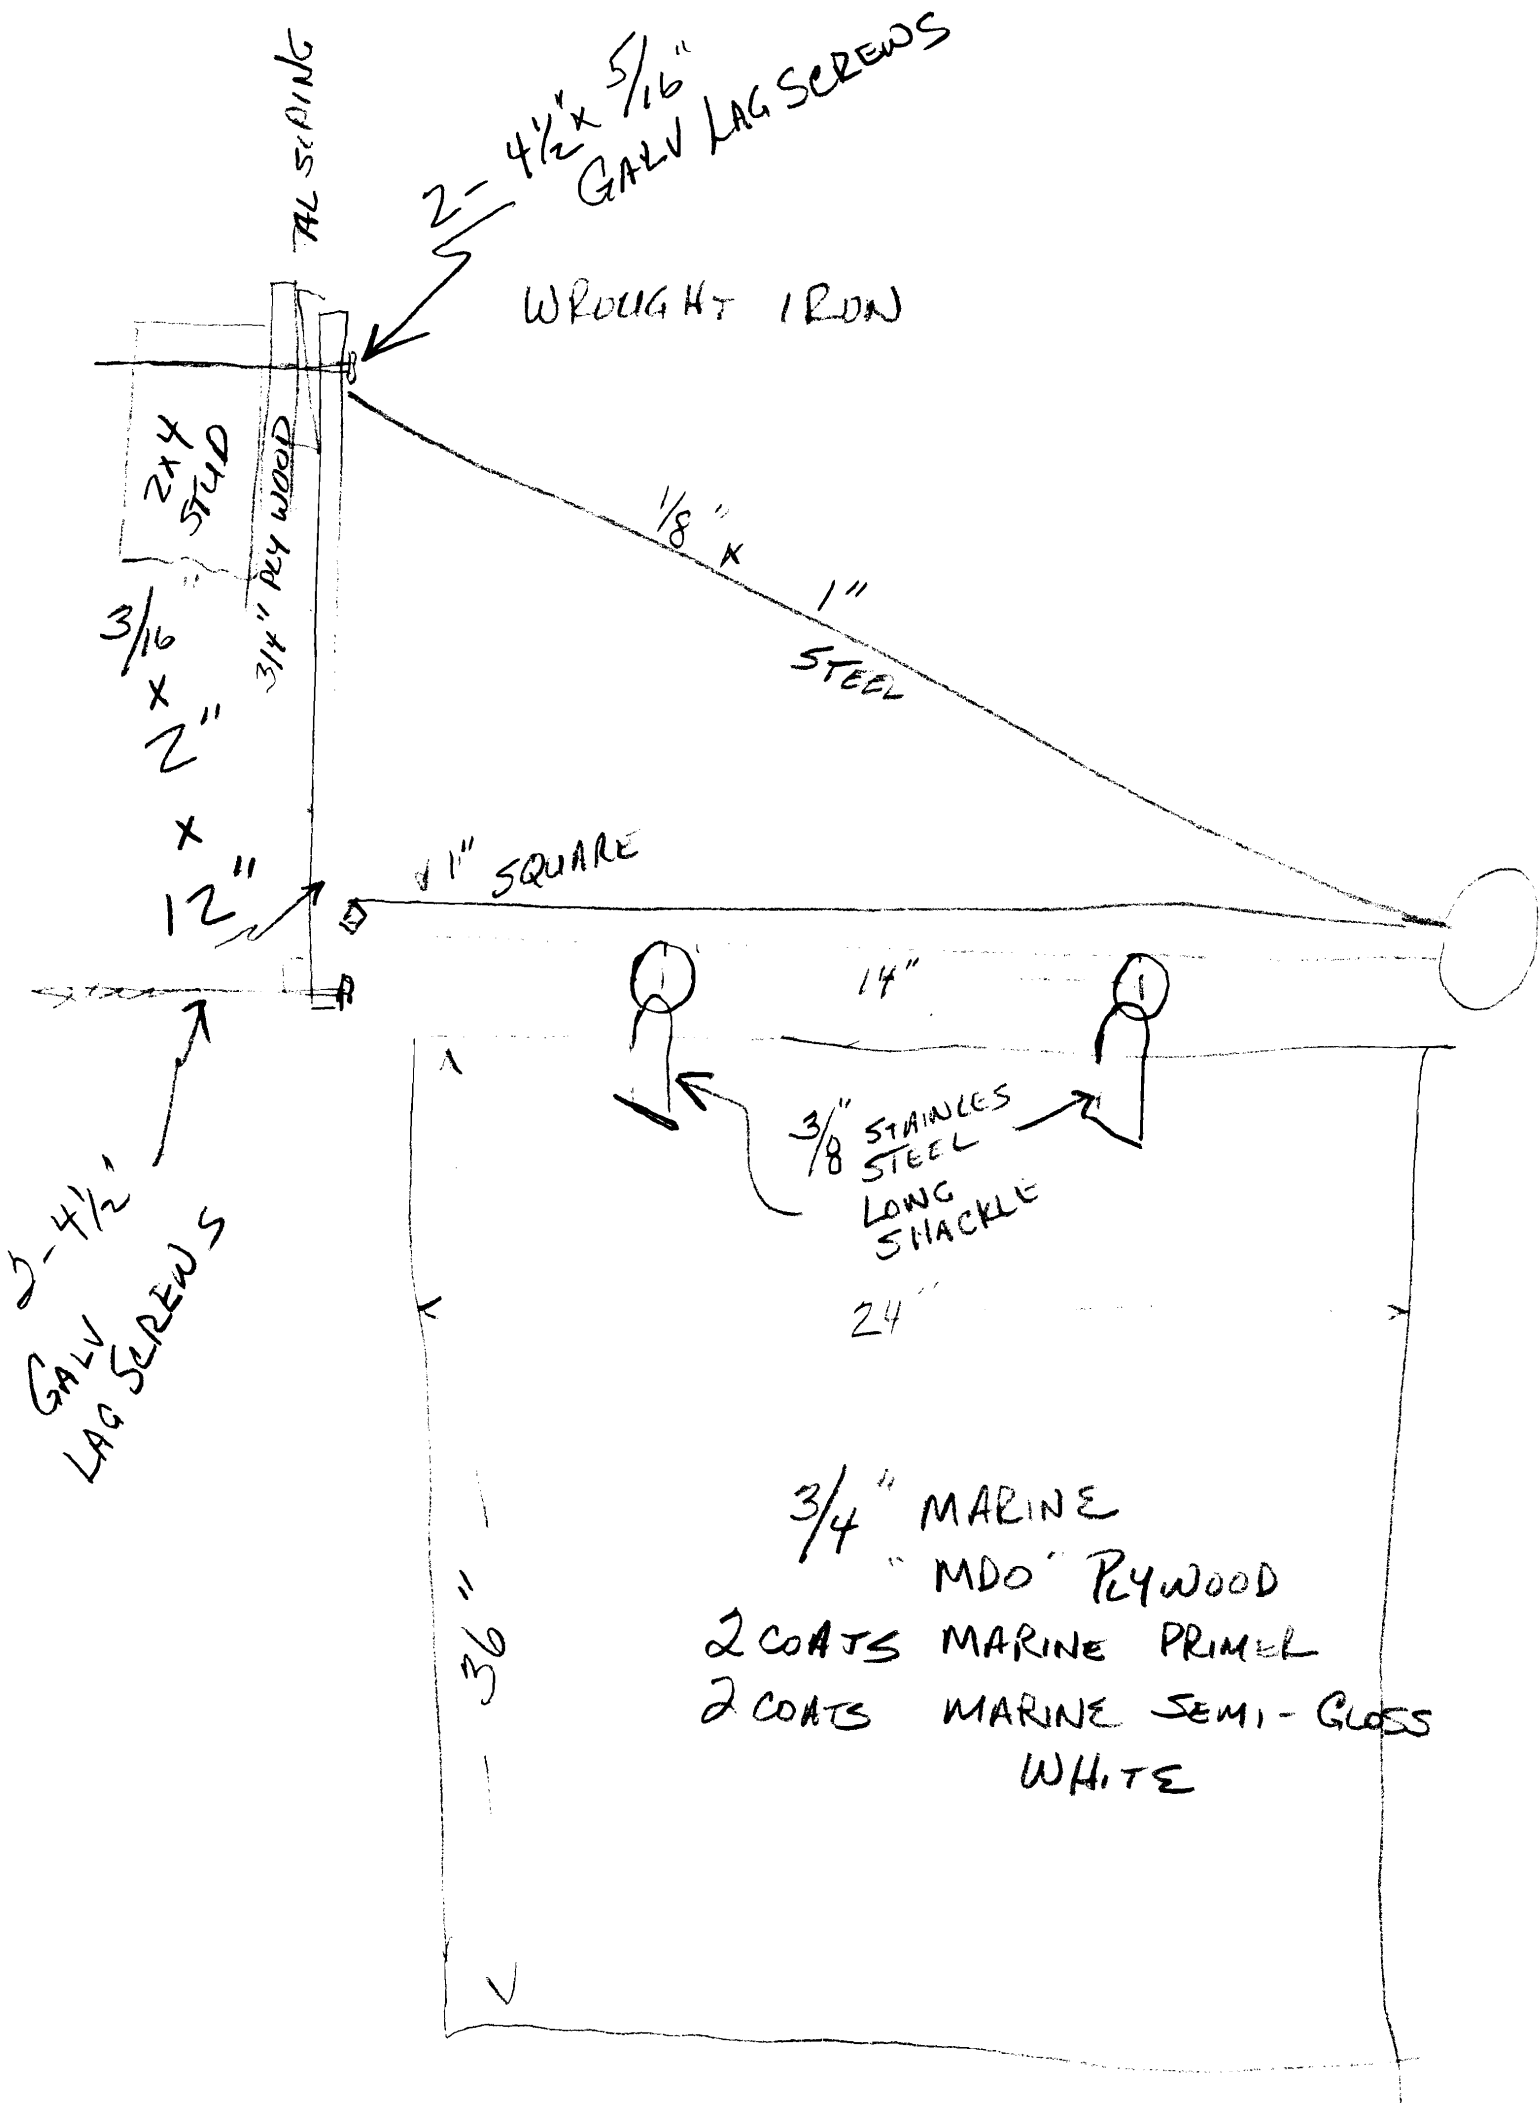 AL SIDING
2- 4 1/2" x 5/16"
GALV LAG SCREWS
WROUGHT IRON
2x4
STUD
3/4" PLYWOOD
3/16"
x
2"
x
12"
1/8" x 1"
STEEL
1" SQUARE
14"
3/8" STAINLES
STEEL
LONG
SHACKLE
2- 4 1/2"
GALV
LAG SCREWS
24"
36"
3/4" MARINE
"MDO" PLYWOOD
2 COATS MARINE PRIMER
2 COATS MARINE SEMI-GLOSS
WHITE